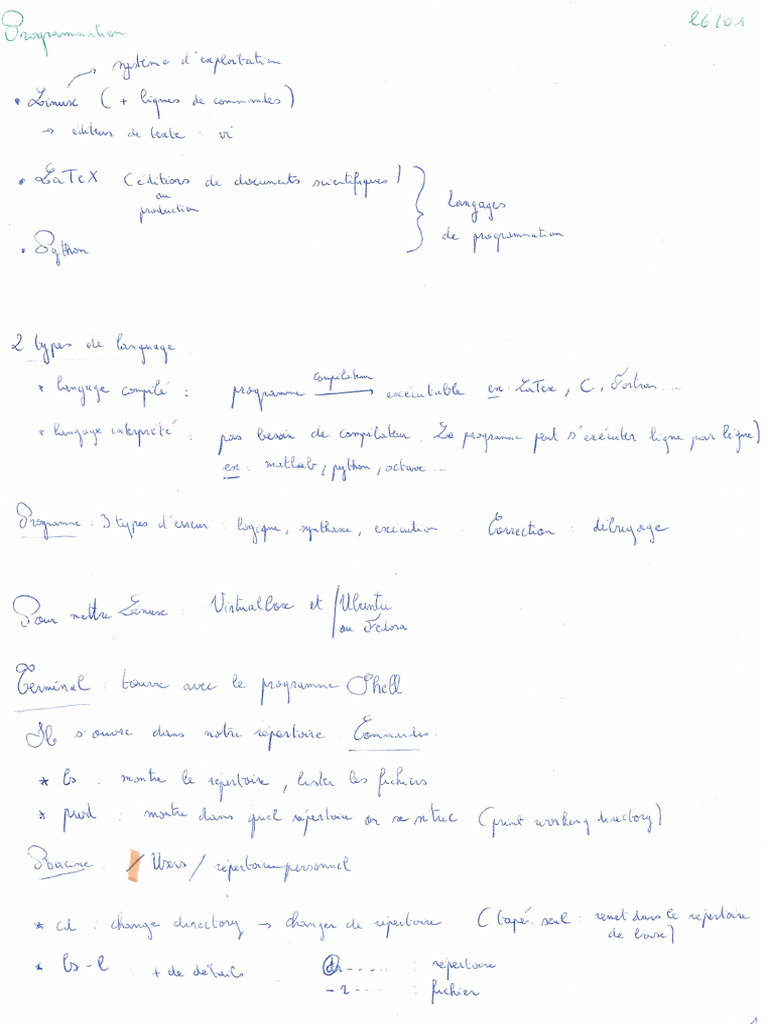 Programmation
26/01
système d'exploitation
• Linux ( + lignes de commandes)
→ éditeur de texte : vi
• LaTeX (éditions de documents scientifiques)
ou
production
Langages
de programmation
• Python
2 types de language :
* langage compilé : programme compilateur → exécutable ex : LaTex, C, Fortran ...
* langage interprété : pas besoin de compilateur. Le programme peut s'exécuter ligne par ligne)
ex : matlab, python, octave ...
Programme : 3 types d'erreur : logique, synthaxe, exécution. Correction : débugage
Pour mettre Linux : Virtualbox et / Ubuntu
ou Fedora
Terminal : tourne avec le programme Shell
Il s'ouvre dans notre répertoire. Commandes.
* ls : montre le répertoire, lister les fichiers
* pwd : montre dans quel répertoire on se situe (print working directory)
Racine : / Users / répertoire personnel
* cd : change directory → changer de répertoire (tapé seul : remet dans le répertoire
de base)
* ls -l : + de détails
d ..... : répertoire
- r .... : fichier
1